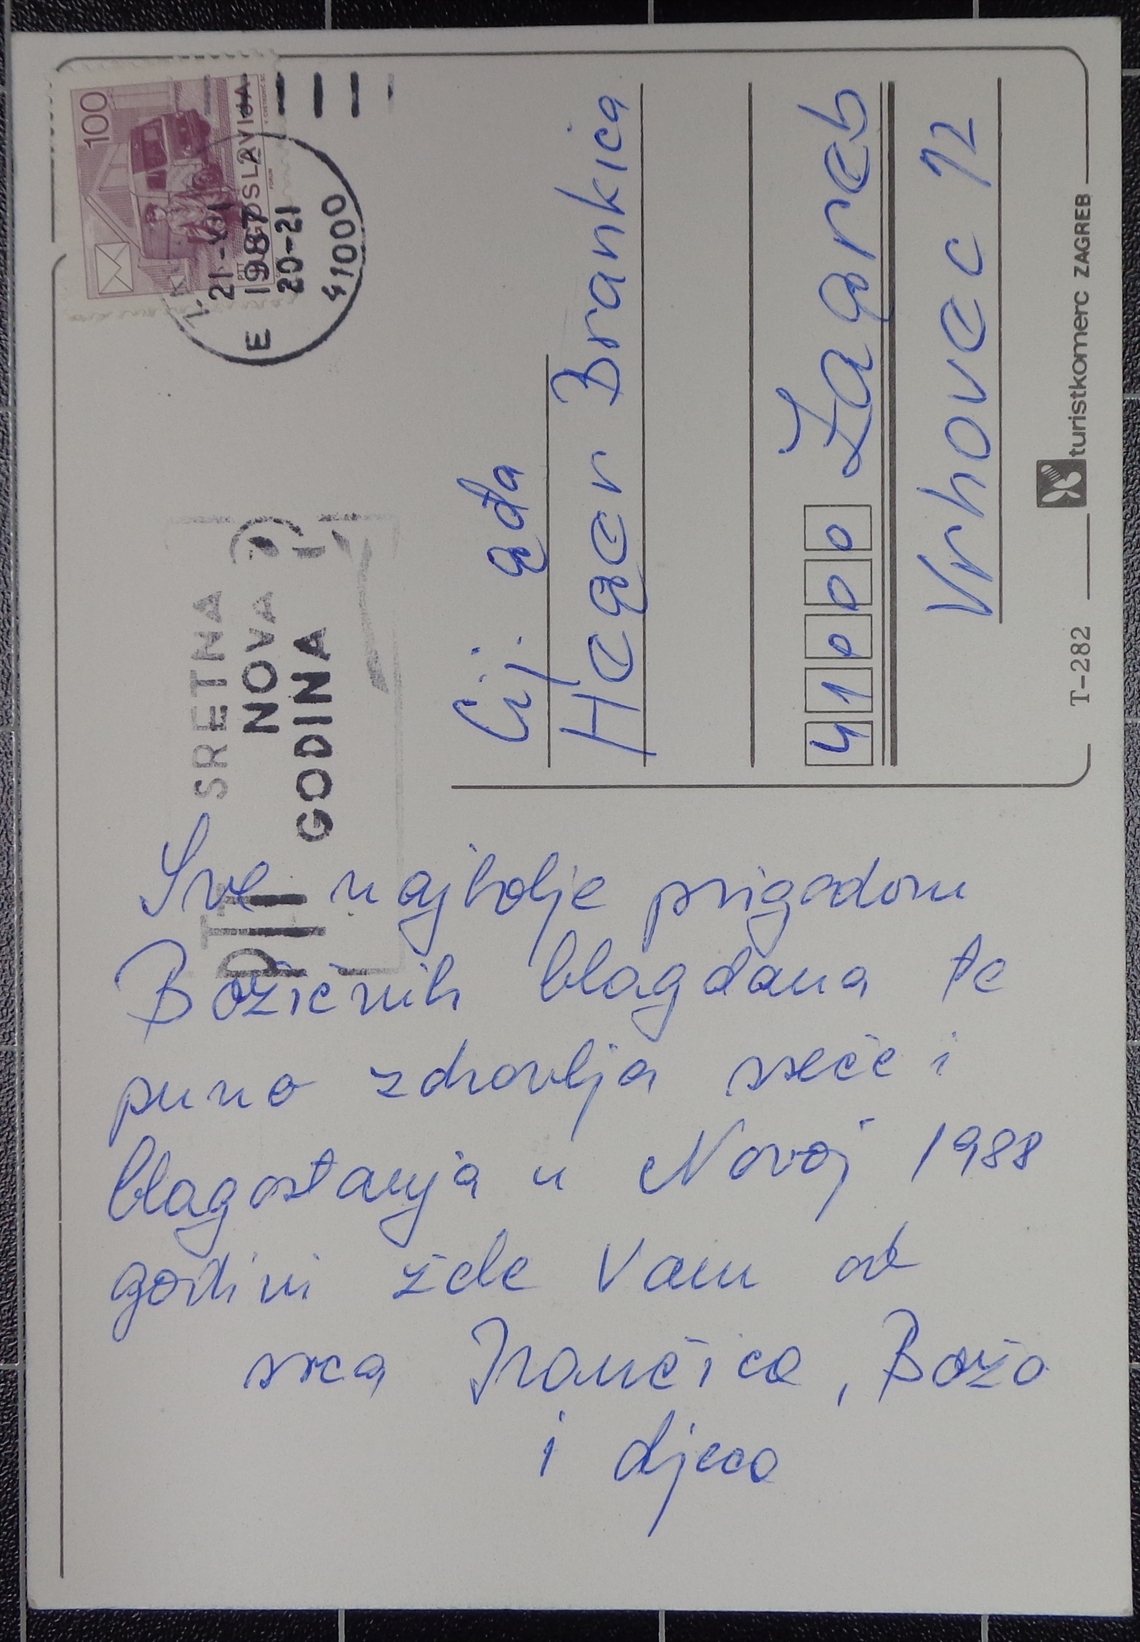 100
PTT JUGOSLAVIJA
21-XII
1987
20-21
E 41000
PTT SRETNA
NOVA
GODINA
Cij. gđa
Heger Brankica
41000 Zagreb
Vrhovec 12
T-282 turistkomerc ZAGREB
Sve najbolje prigodom
Božićnih blagdana te
puno zdravlja sreće i
blagostanja u Novoj 1988
godini žele Vam od
srca Ivančica, Božo
i djeca